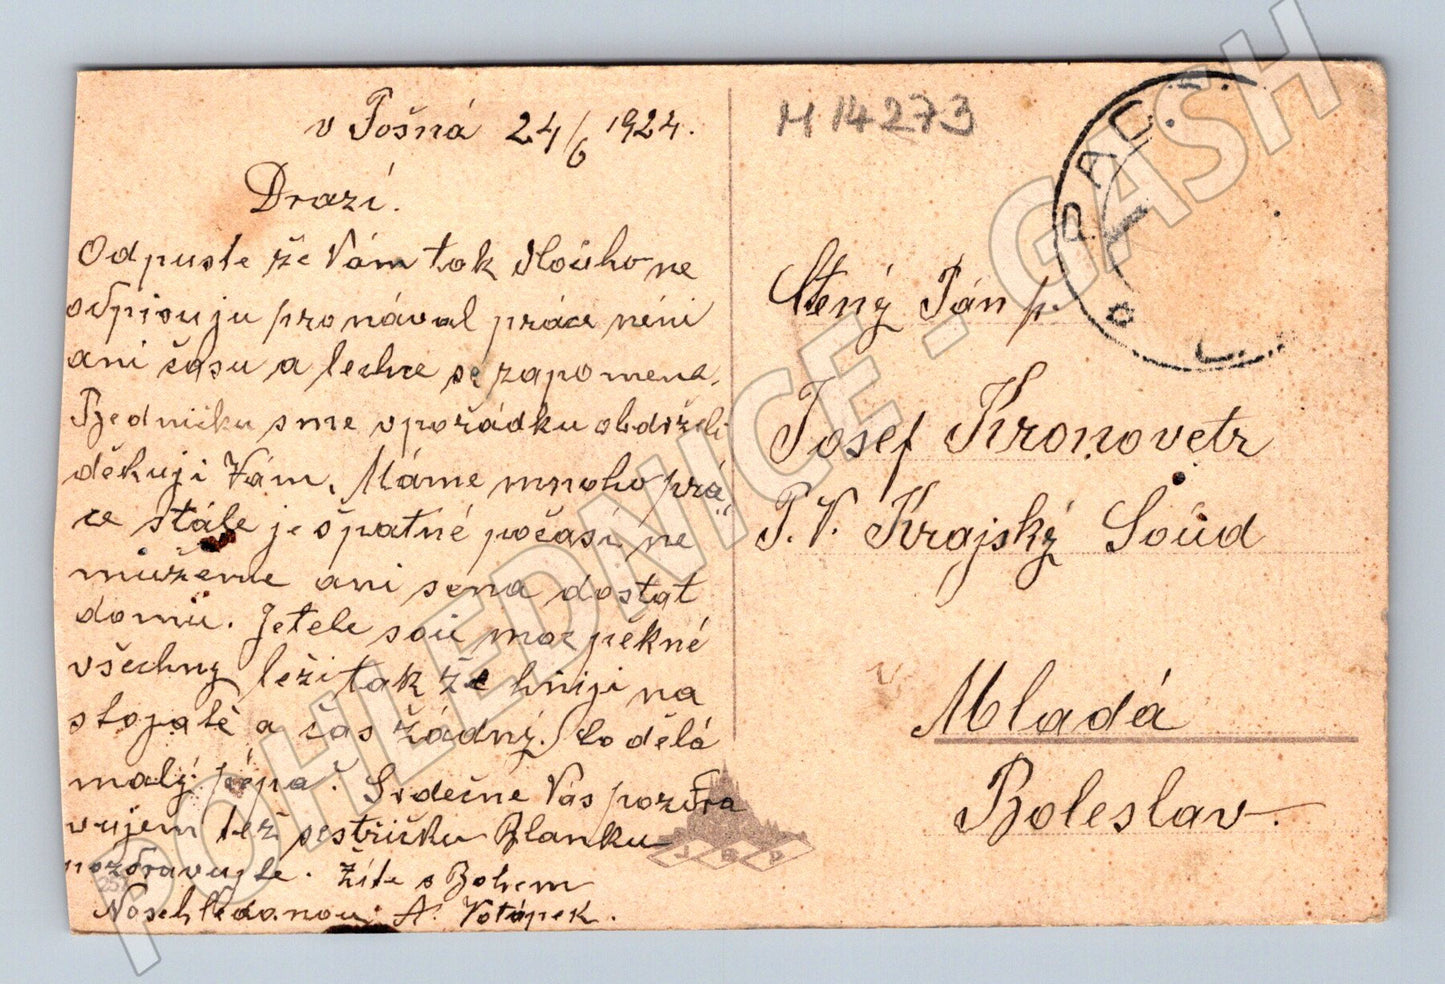 v Pošná 24/6 1924.
Drazí.
Odpuste že Vám tak dloúho ne
odpisuju pronával práce néni
ani času a lechce se zapomene.
Bedničku sme vpořádku obdrželi
děkuji Vám. Máme mnoho prá„
ce stále je špatné počasí, ne
můžeme ani sena dostat
domů. Jetele soú moc pěkné
všechny leži tak že hniji na
stojatě a čas žádný. Co dělá
malý pepa. Srdečne Vás pozdra
vujem též sestřičku Blanku
pozdravujte. Žite s Bohem
Naschledanou A. Votápek.
M 14273
PAC
Ctený Pán p.
Josef Kronovetr
T. V. Krajský Soúd
v
Mladá
Boleslav.
257
POHLEDNICE - GASH